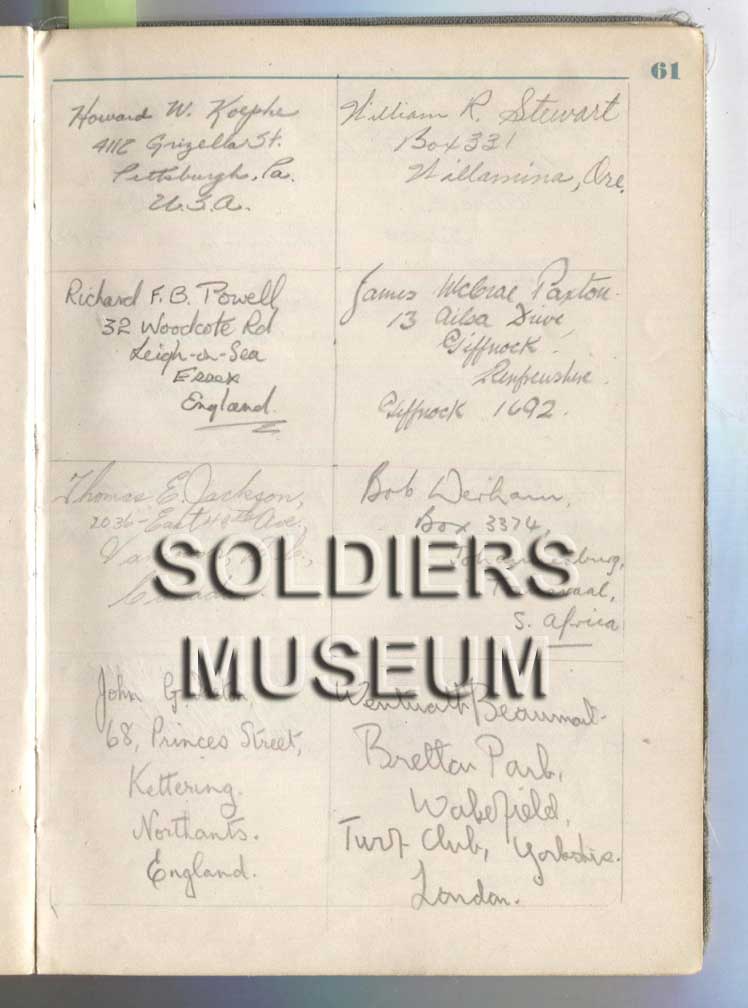 61
Howard W. Koephe
4112 Grizella St.
Pittsburgh, Pa.
U.S.A.
William R. Stewart
Box 331
Willamina, Ore.
Richard F. B. Powell
32 Woodcote Rd
Leigh-on-Sea
Essex
England.
James McCrae Paxton.
13 Ailsa Drive
Giffnock.
Renfrewshire.
Giffnock 1692.
Thomas E. Jackson,
2036-East 48th Ave.,
Canada.
Bob Derham,
Box 3374,
Johannesburg,
Transvaal,
S. Africa
SOLDIERS
MUSEUM
John G.
68, Princes Street,
Kettering.
Northants.
England.
Wentworth Beaumont.
Bretton Park,
Wakefield,
Turf Club, Yorkshire.
London.